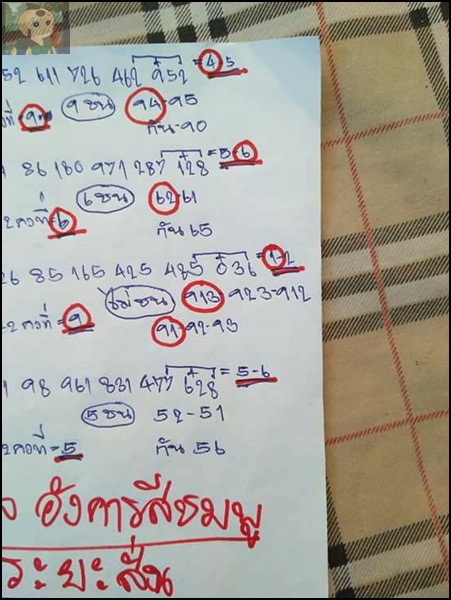 52 611 726 462 952 = 4 5
วที่ = 9 9 ชน 94-95
กัน-90
1 86 180 971 287 128 = 5-6
2 ตวที่ = 6 6 ชน 62-61
กัน 65
26 85 165 425 425 036 = 1-2
-2 ตวที่ = 9 ไม่ชน 913 923-912
91-92-93
1 98 961 831 477 628 = 5-6
5 ชน 52-51
2 ตวที่ = 5 กัน 56
อังคารสีชมพู
ระยะสั้น